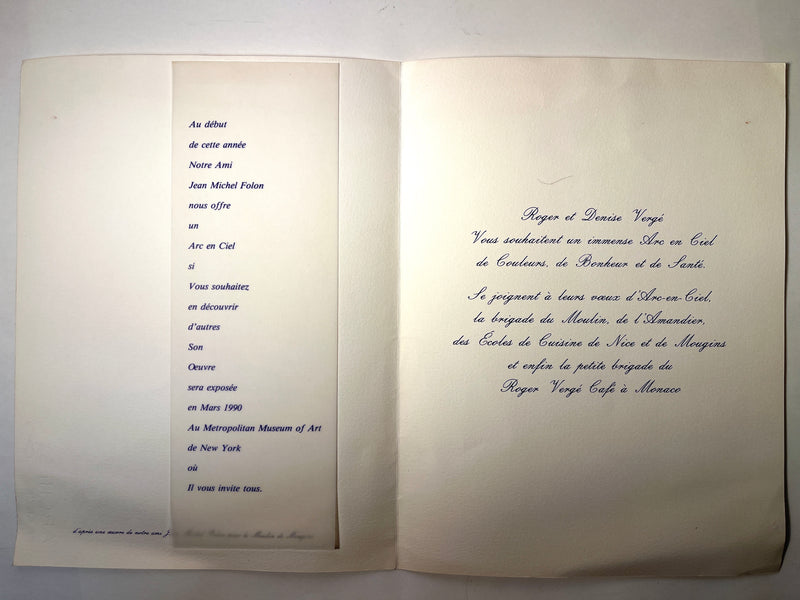 Au début
de cette année
Notre Ami
Jean Michel Folon
nous offre
un
Arc en Ciel
si
Vous souhaitez
en découvrir
d'autres
Son
Oeuvre
sera exposée
en Mars 1990
Au Metropolitan Museum of Art
de New York
où
Il vous invite tous.
d'après une œuvre de notre ami J. Michel Folon pour le Moulin de Mougins
Roger et Denise Vergé
Vous souhaitent un immense Arc en Ciel
de Couleurs, de Bonheur et de Santé.
Se joignent à leurs vœux d'Arc-en-Ciel,
la brigade du Moulin, de l'Amandier,
des Écoles de Cuisine de Nice et de Mougins
et enfin la petite brigade du
Roger Vergé Café à Monaco